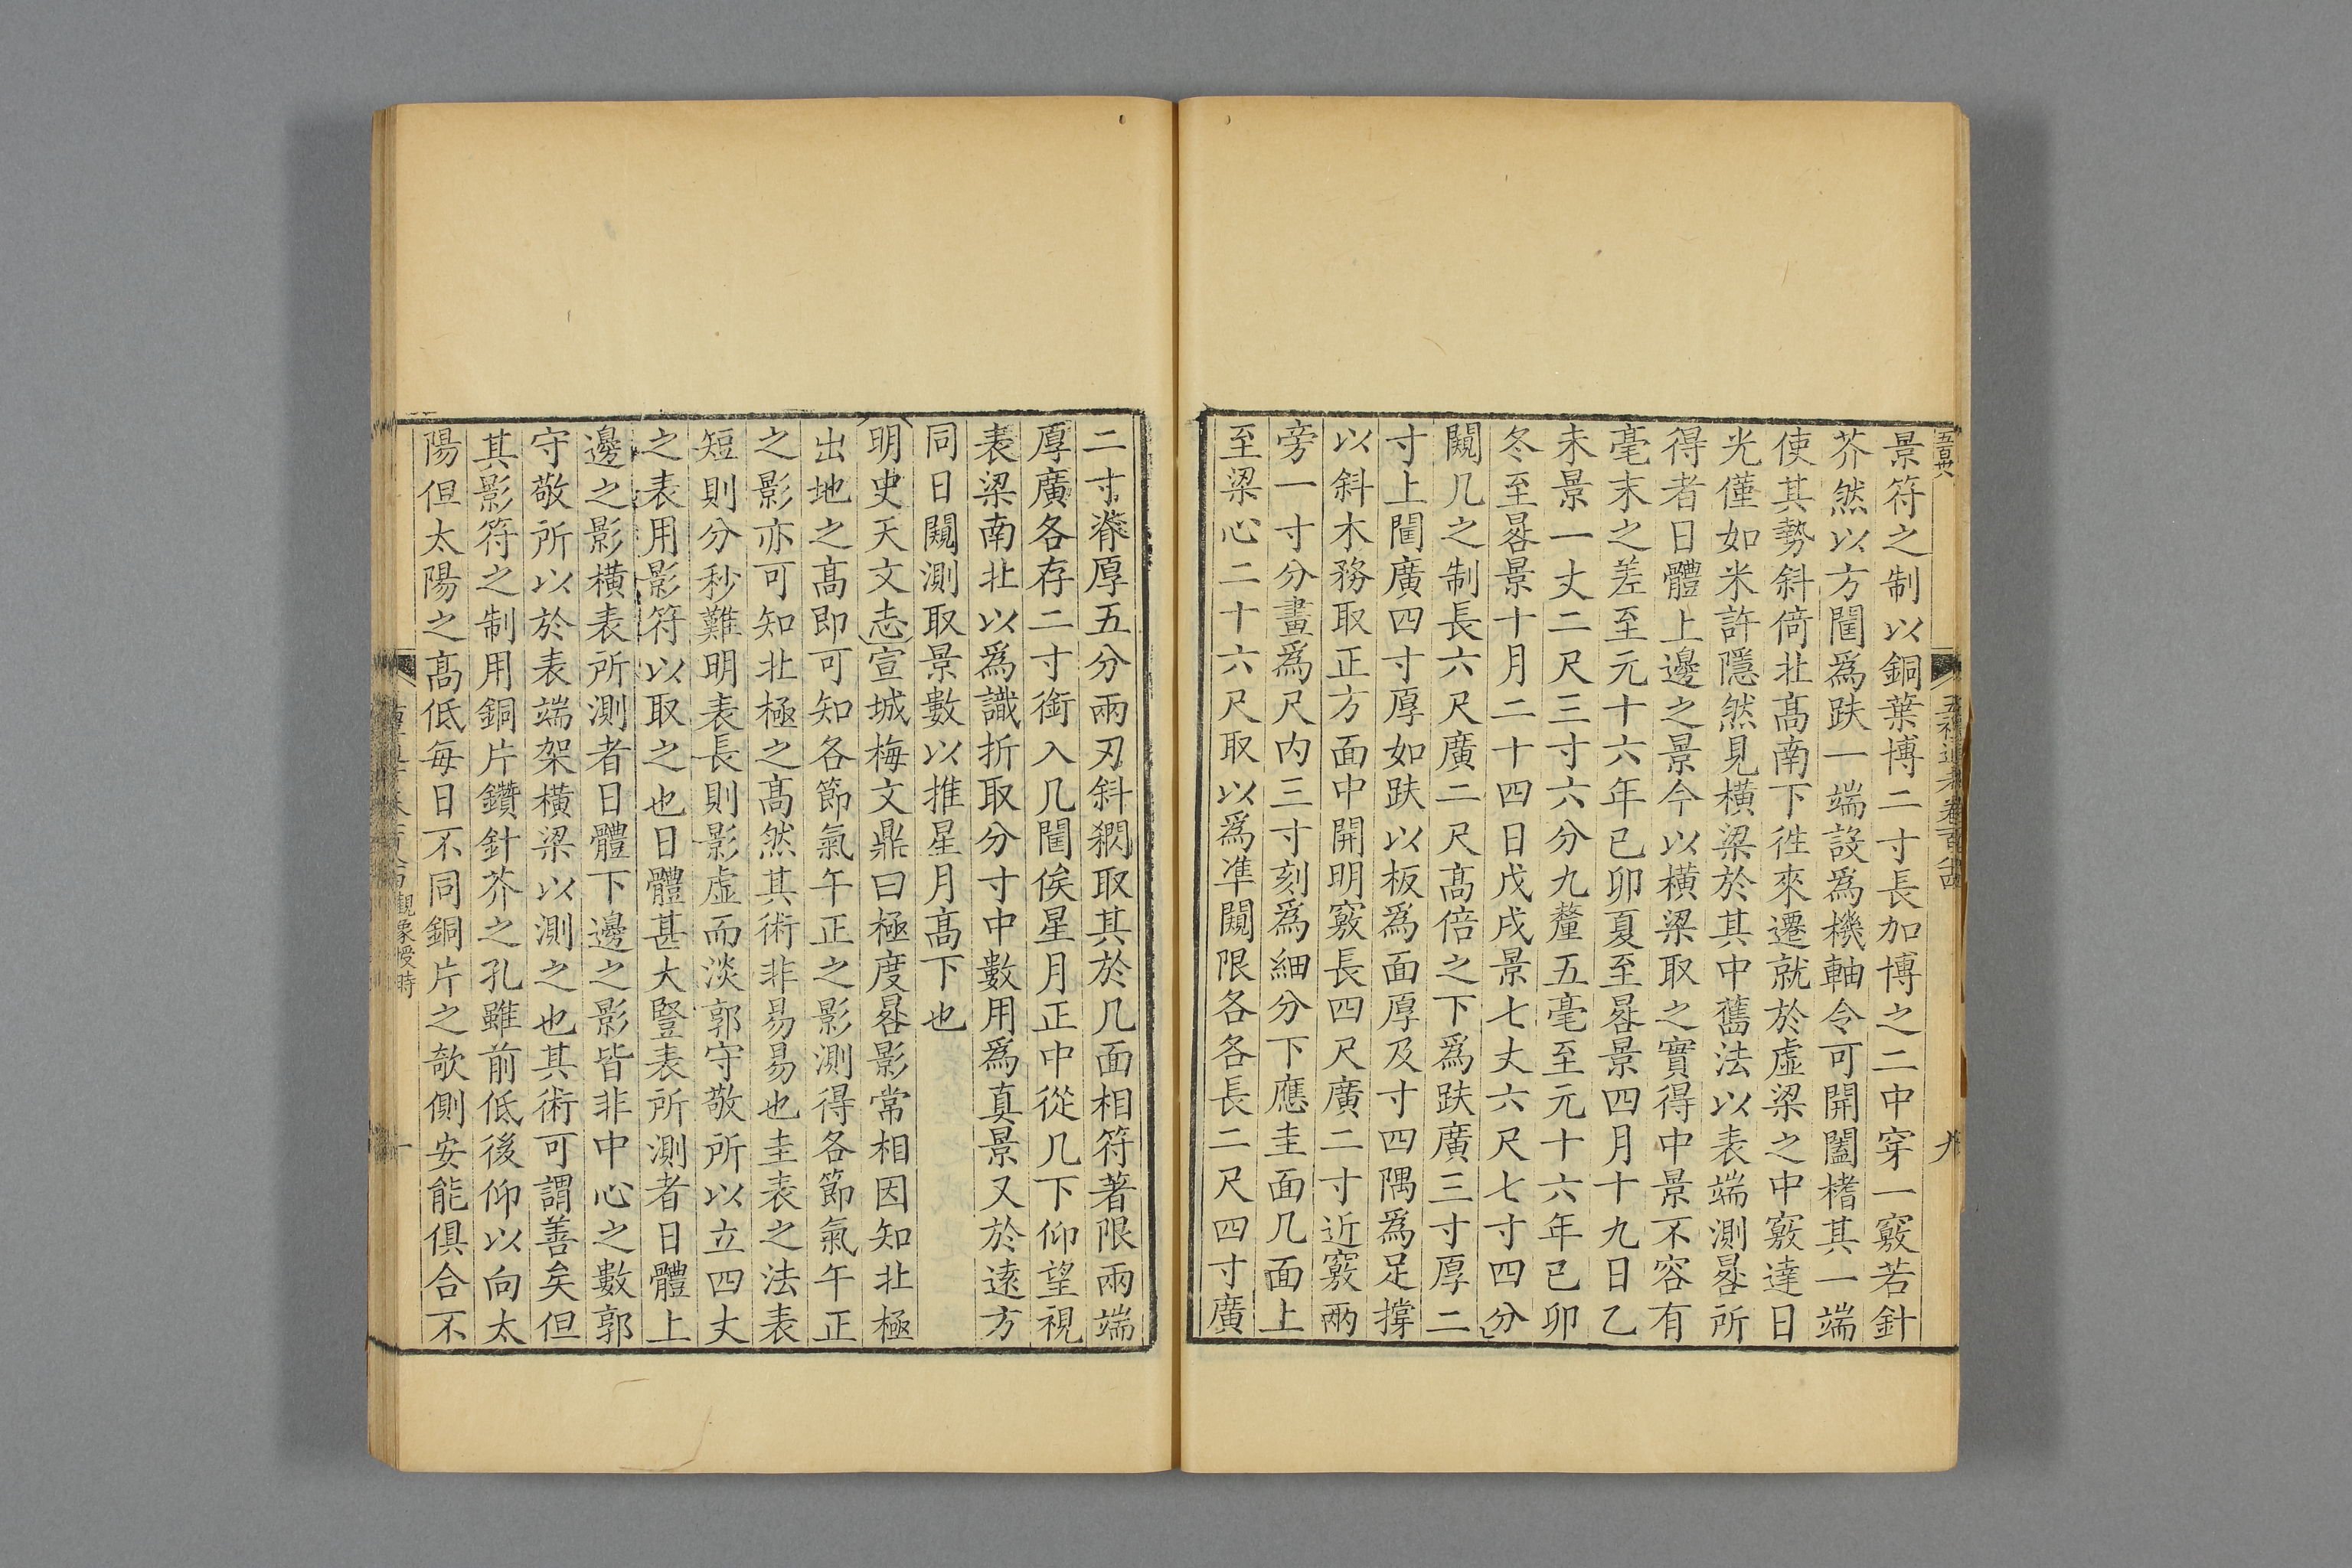 景符之制以銅葉博二寸長加博之二中穿一竅若針
芥然以方闉爲趺一端設爲機軸令可開闔榰其一端
使其勢斜倚北髙南下徃來遷就於虚梁之中竅達日
光僅如米許隱然見橫梁於其中舊法以表端測晷所
得者日體上邊之景今以橫梁取之實得中景不容有
毫末之差至元十六年己卯夏至晷景四月十九日乙
未景一丈二尺三寸六分九釐五毫至元十六年己卯
冬至晷景十月二十四日戊戌景七丈六尺七寸四分
闚几之制長六尺廣二尺髙倍之下爲趺廣三寸厚二
寸上闉廣四寸厚如趺以板爲面厚及寸四隅爲足撐
以斜木務取正方面中開明竅長四尺廣二寸近竅兩
旁一寸分畫爲尺内三寸刻爲細分下應圭面几面上
至梁心二十六尺取以爲準闚限各各長二尺四寸廣
二寸脊厚五分兩刃斜閷取其於几面相符著限兩端
厚廣各存二寸銜入几闉俟星月正中從几下仰望視
表梁南北以爲識折取分寸中數用爲真景又於遠方
同日闚測取景數以推星月髙下也
明史天文志宣城梅文鼎曰極度晷影常相因知北極
出地之髙即可知各節氣午正之影測得各節氣午正
之影亦可知北極之髙然其術非易易也圭表之法表
短則分秒難明表長則影虚而淡郭守敬所以立四丈
之表用影符以取之也日體甚大豎表所測者日體上
邊之影橫表所測者日體下邊之影皆非中心之數郭
守敬所以於表端架橫梁以測之也其術可謂善矣但
其影符之制用銅片鑽針芥之孔雖前低後仰以向太
陽但太陽之髙低每日不同銅片之欹側安能俱合不
觀象授時